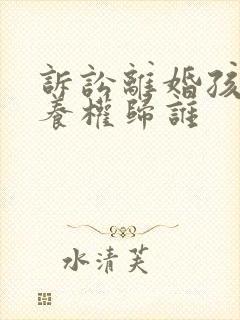 訴訟離婚孩
養權歸誰
水清芙